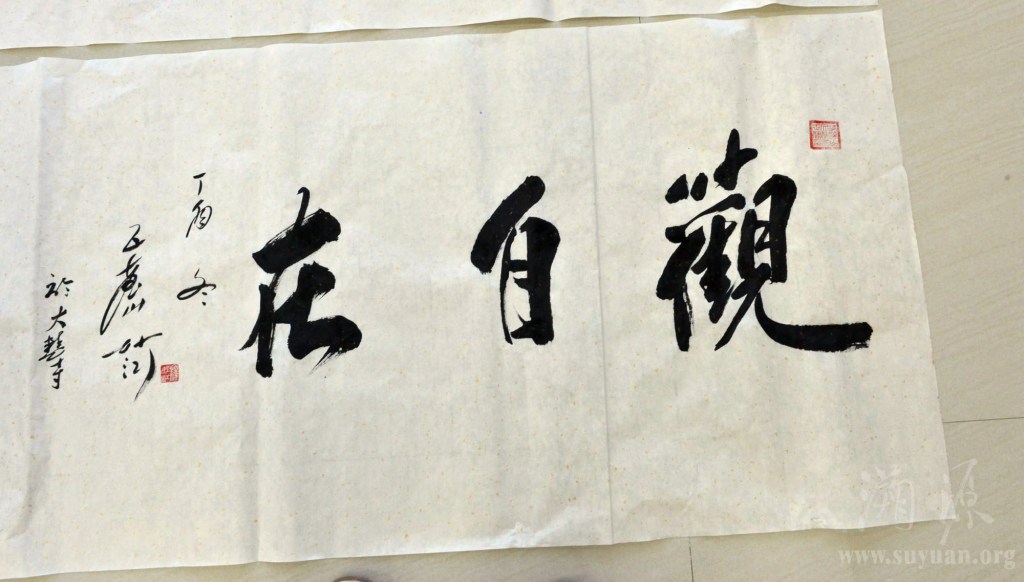 觀自在
丁酉 冬
於大慧寺
溯源
www.suyuan.org